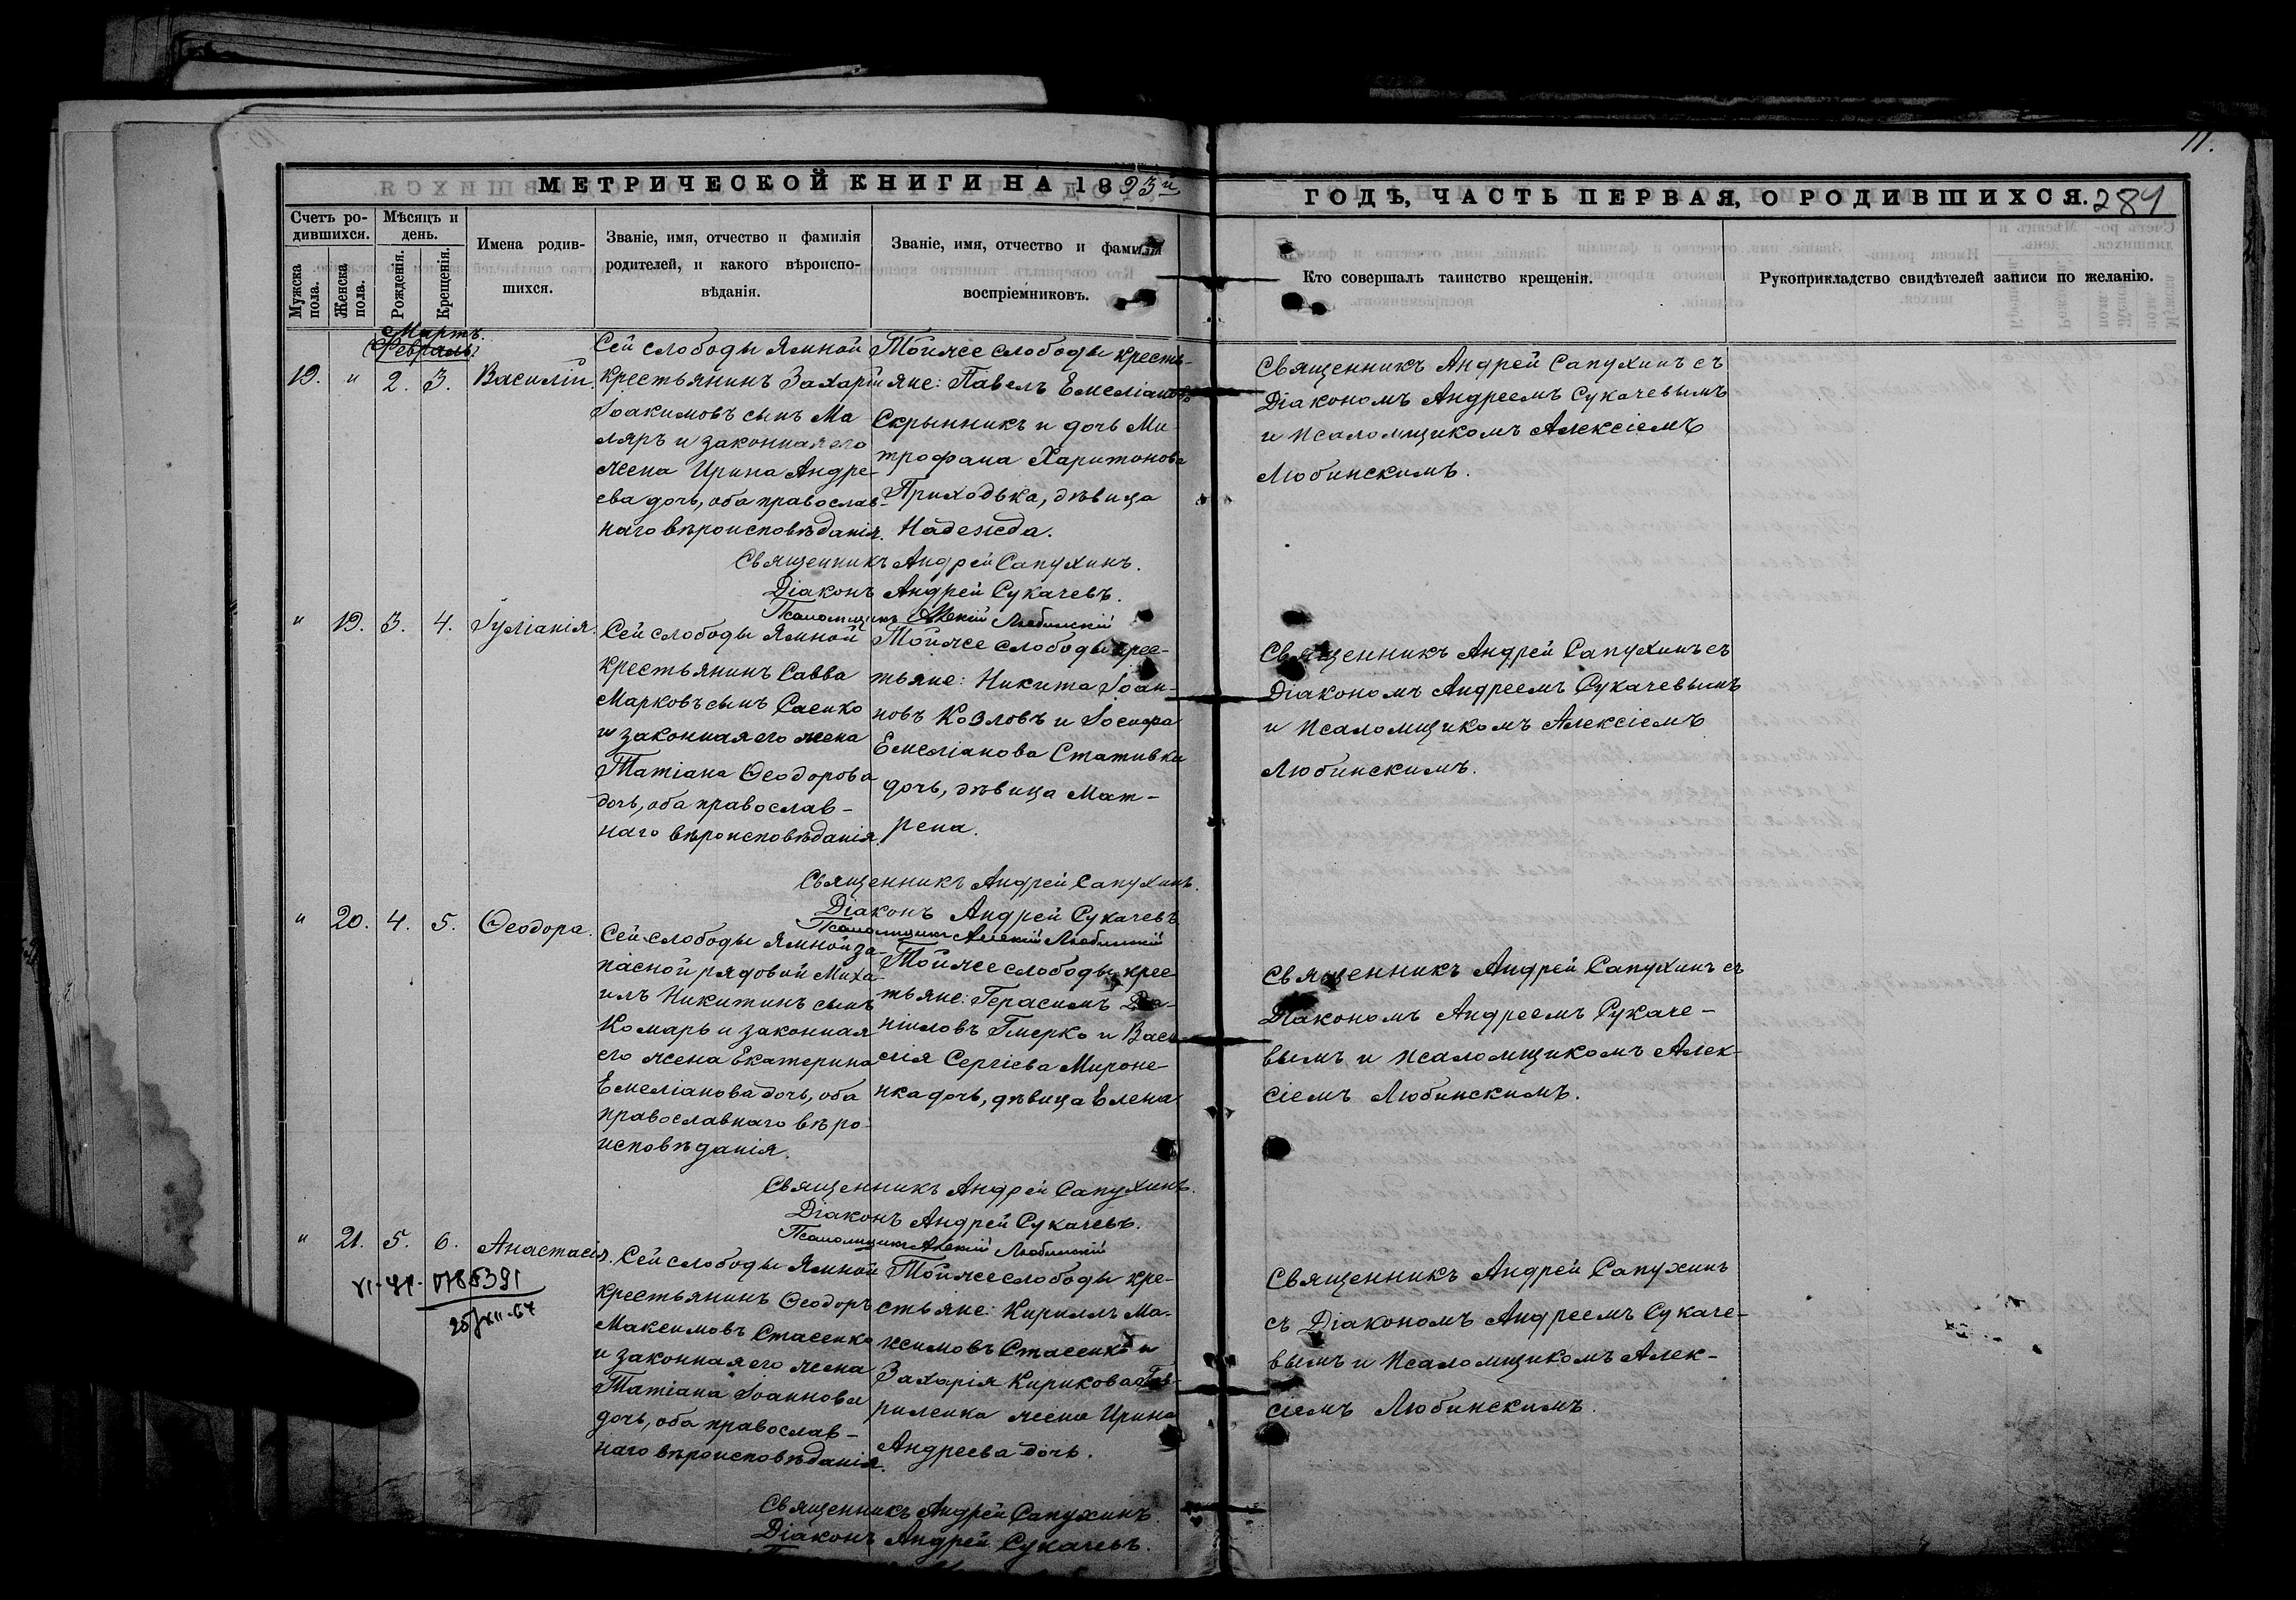 11.
МЕТРИЧЕСКОЙ КНИГИ НА 1893й
ГОДЪ, ЧАСТЬ ПЕРВАЯ, О РОДИВШИХСЯ.
284
Счетъ ро-
дившихся.
Мужска
пола.
Женска
пола.
Мѣсяцъ и
день.
Рожденія.
Крещенія.
Имена родив-
шихся.
Званіе, имя, отчество и фамилія
родителей, и какого вѣроиспо-
вѣданія.
Званіе, имя, отчество и фамилія
воспріемниковъ.
Кто совершалъ таинство крещенія.
Рукоприкладство свидѣтелей записи по желанію.
Мартъ.
Февраль
19. " 2. 3. Василій.
Сей слободы Ямной
крестьянинъ Захарій
Іоакимовъ сынъ Ма
ляръ и законная его
жена Ирина Андре-
ева дочь, оба православ-
наго вѣроисповѣданія.
Тойже слободы кресть-
яне: Павелъ Емеліановъ
Скрынникъ и дочь Ми-
трофана Харитонова
Приходька, дѣвица
Надежда.
Священникъ Андрей Сапухинъ съ
Діакономъ Андреемъ Сукачевымъ
и Псаломщикомъ Алексіемъ
Любинскимъ.
Священникъ Андрей Сапухинъ.
Діаконъ Андрей Сукачевъ.
Псаломщикъ Алексій Любинскій
" 19. 3. 4. Іуліанія.
Сей слободы Ямной
крестьянинъ Савва
Марковъ сынъ Саенко
и законная его жена
Татіана Ѳеодорова
дочь, оба православ-
наго вѣроисповѣданія.
Тойже слободы крес-
тьяне: Никита Іоан-
новъ Козловъ и Іосифа
Емеліанова Стативки
дочь, дѣвица Мат-
рена.
Священникъ Андрей Сапухинъ съ
Діакономъ Андреемъ Сукачевымъ
и Псаломщикомъ Алексіемъ
Любинскимъ.
Священникъ Андрей Сапухинъ.
Діаконъ Андрей Сукачевъ
Псаломщикъ Алексій Любинскій
" 20. 4. 5. Ѳеодора.
Сей слободы Ямной за-
пасной рядовой Миха-
илъ Никитинъ сынъ
Комаръ и законная
его жена Екатерина
Емеліанова дочь, оба
православнаго вѣро-
исповѣданія.
Тойже слободы крес-
тьяне: Герасимъ Да-
ніиловъ и Васи-
лія Сергіева Мироне-
нка дочь, дѣвица Елена
Священникъ Андрей Сапухинъ съ
Діакономъ Андреемъ Сукаче-
вымъ и Псаломщикомъ Алек-
сіемъ Любинскимъ.
Священникъ Андрей Сапухинъ.
Діаконъ Андрей Сукачевъ.
Псаломщикъ Алексій Любинскій
" 21. 5. 6. Анастасія.
Сей слободы Ямной
крестьянинъ Ѳеодоръ
Максимовъ Стасенко
и законная его жена
Татіана Іоаннова
дочь, оба православ-
наго вѣроисповѣданія.
Тойже слободы кре-
стьяне: Кириллъ Ма-
ксимовъ Стасенко и
Захарія Кирикова Гав-
риленка жена Ирина
Андреева дочь.
Священникъ Андрей Сапухинъ
съ Діакономъ Андреемъ Сукаче-
вымъ и Псаломщикомъ Алек-
сіемъ Любинскимъ.
Священникъ Андрей Сапухинъ.
Діаконъ Андрей Сукачевъ.